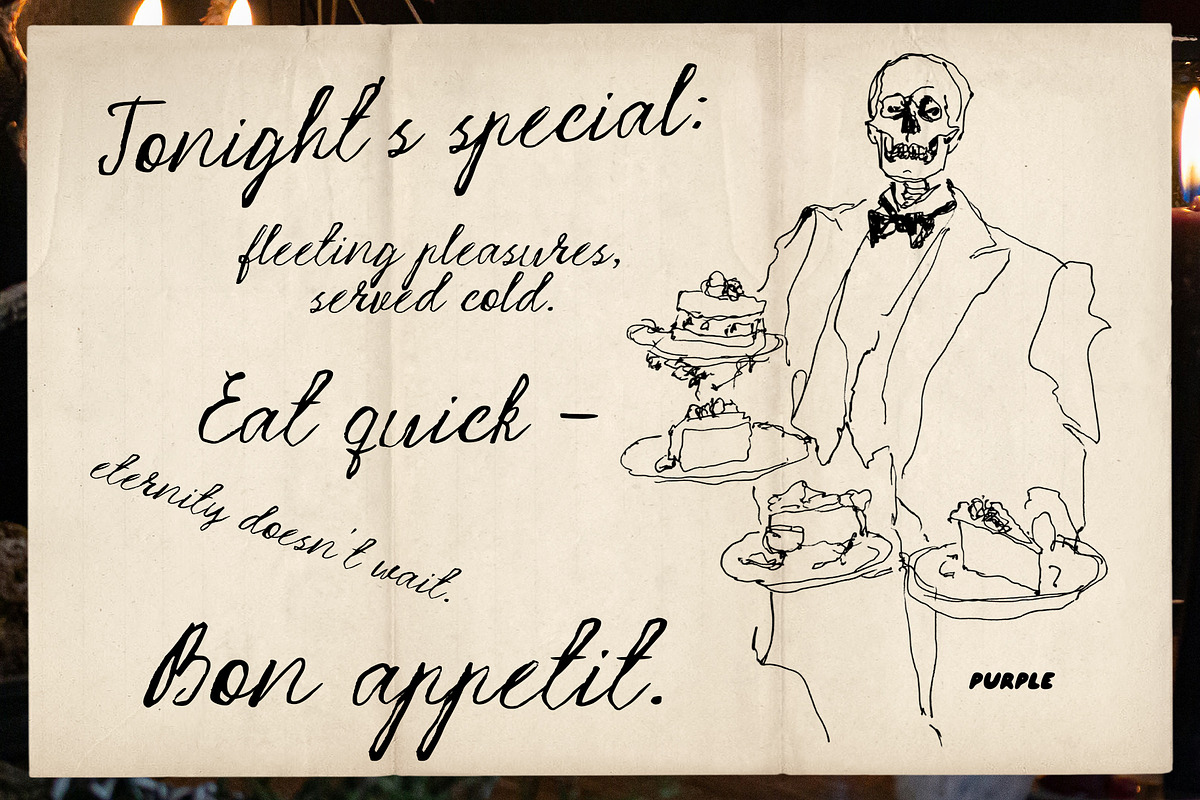 Tonight's special:
fleeting pleasures,
served cold.
Eat quick –
eternity doesn't wait.
Bon appetit.
PURPLE